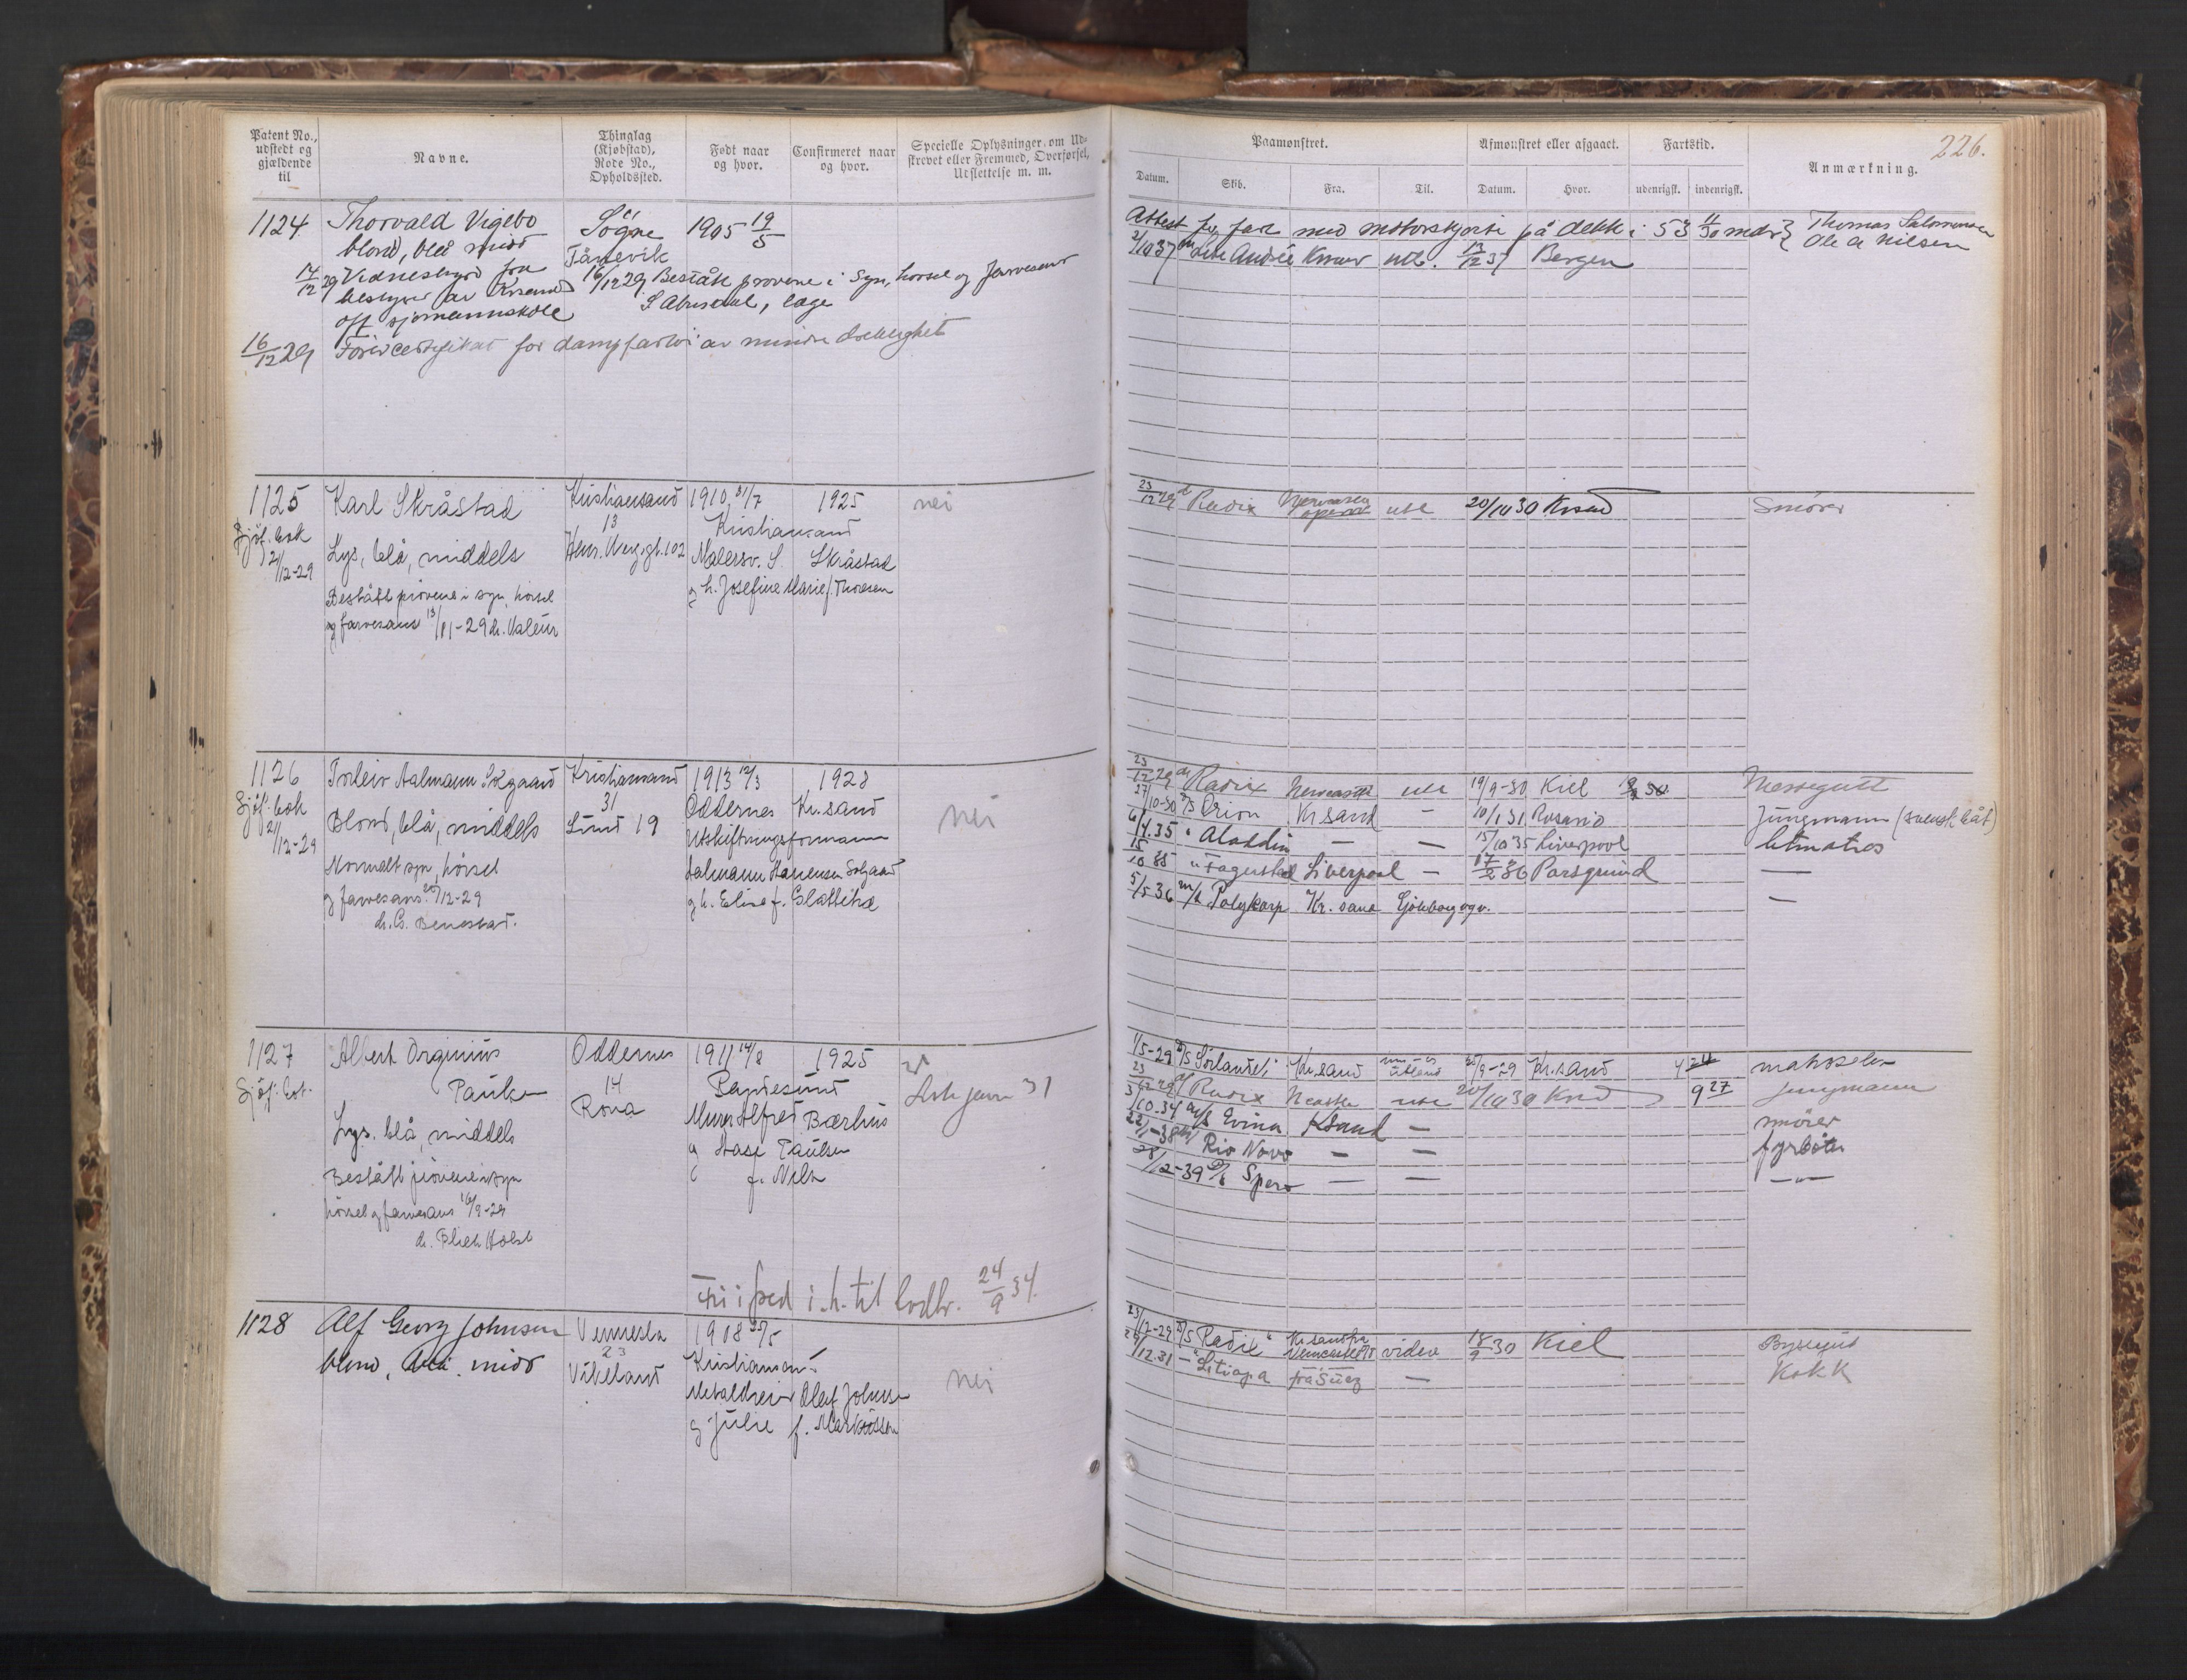 226.
Patent No., udstedt og gjældende til
Navne.
Thinglag (Kjøbstad), Rode No., Opholdssted.
Født naar og hvor.
Confirmeret naar og hvor.
Specielle Oplysninger om Udskrevet eller Fremmed, Overførsel, Udslettelse m. m.
Paamønstret.
Afmønstret eller afgaaet.
Fartstid.
Anmærkning.
Datum.
Skib.
Fra.
Til.
Datum.
Hvor.
udenrigsk.
indenrigsk.
1124 Thorvald Vigebo Søgne 1905 19/5
blond, blå midd Tånevik
17/12 29 Vidnesbyrd fra bestyrer av Krsand off sjømannskole
16/12 29 Bestått prøvene i Syn, hørsel og farvesans
læge
16/12 29 Førercertifikat for dampfartøi av mindre drektighet
Attest for fart med motorskjøite på dekk i 53 11/30 mdr } Thomas Salomonsen
Ole A Nilsen
2/10 37 André utl. 13/12 37 Bergen
1125 Karl Skråstad Kristiansand 1910 31/7 1925 nei
Sjøf. bok 21/12-29
13 Kristiansand
Lys, blå, middels Hen. Werg.gt. 102 Malersv. S. Skråstad
og h. Josefine Marie f. Thorsen
Bestått prøvene i syn, hørsel
og farvesans 13/11-29 dr. Valeur
23/12 29 Radix utl 20/10 30 Krsand Smører
1126 Torleiv Aalmann Solgaard Kristiansand 1913 12/3 1928 nei
Sjøf. bok 21/12-29
31 Oddernes Kr.sand
Blond, blå, middels Lund 19 Utskiftningsformann
Normalt syn, hørsel Aalmann Hansen Solgaard
og farvesans /12-29 og h. Elise f. Sletthei
dr. G. Bennestad.
23/12 29 Radix Newcastle utl 19/9-30 Kiel Messegutt
27/10-30 Orion Kr sand — 10/1 31 Rosario Jungmann (svensk båt)
6/4.35 " Aladdin — — 15/10 35 Liverpool letmatros
15/10 35 " Fagersted Liverpool — 17/2 36 Porsgrund —
5/5 36 m/s Polykarp Kr. sand Gøteborg ogv. —
1127 Albert Orginius Oddernes 1911 14/8 1925
Sjøf. bok. Paulsen 14 Randesund
Rona Murer Alfred Bærlius
Lys, blå, middels og Aase Paulsen
f. Nils
Bestått prøvene i syn
hørsel og farvesans 16/9-29
dr. Blich Holst
Fri i fred i. h. til lovbr. 24/9 34.
1/5-29 D/S Sørlandet Kr.sand /9-29 Kr.sand matroselev
23/12 29 Radix Ncastle utl 20/10 30 Krsd 9 27 jungmann
3/10.34 m/s Evina Krsand — smører
22/1-38 Rio Novo — — fyrbøter
28/12-39 D/S Spero — — —"—
1128 Alf Georg Johnsen Vennesla 1908 25/5 nei
blond, blå, midd 23 Kristiansand
Vikeland Metaldreier Olaf Johnsen
og Julie f. Markussen
23/12-29 D/S "Radix" Kr.sand fra Newcastle videre 18/9 30 Kiel Byssegut
/12.31 —"— Litiopa fra Suez — Kokk